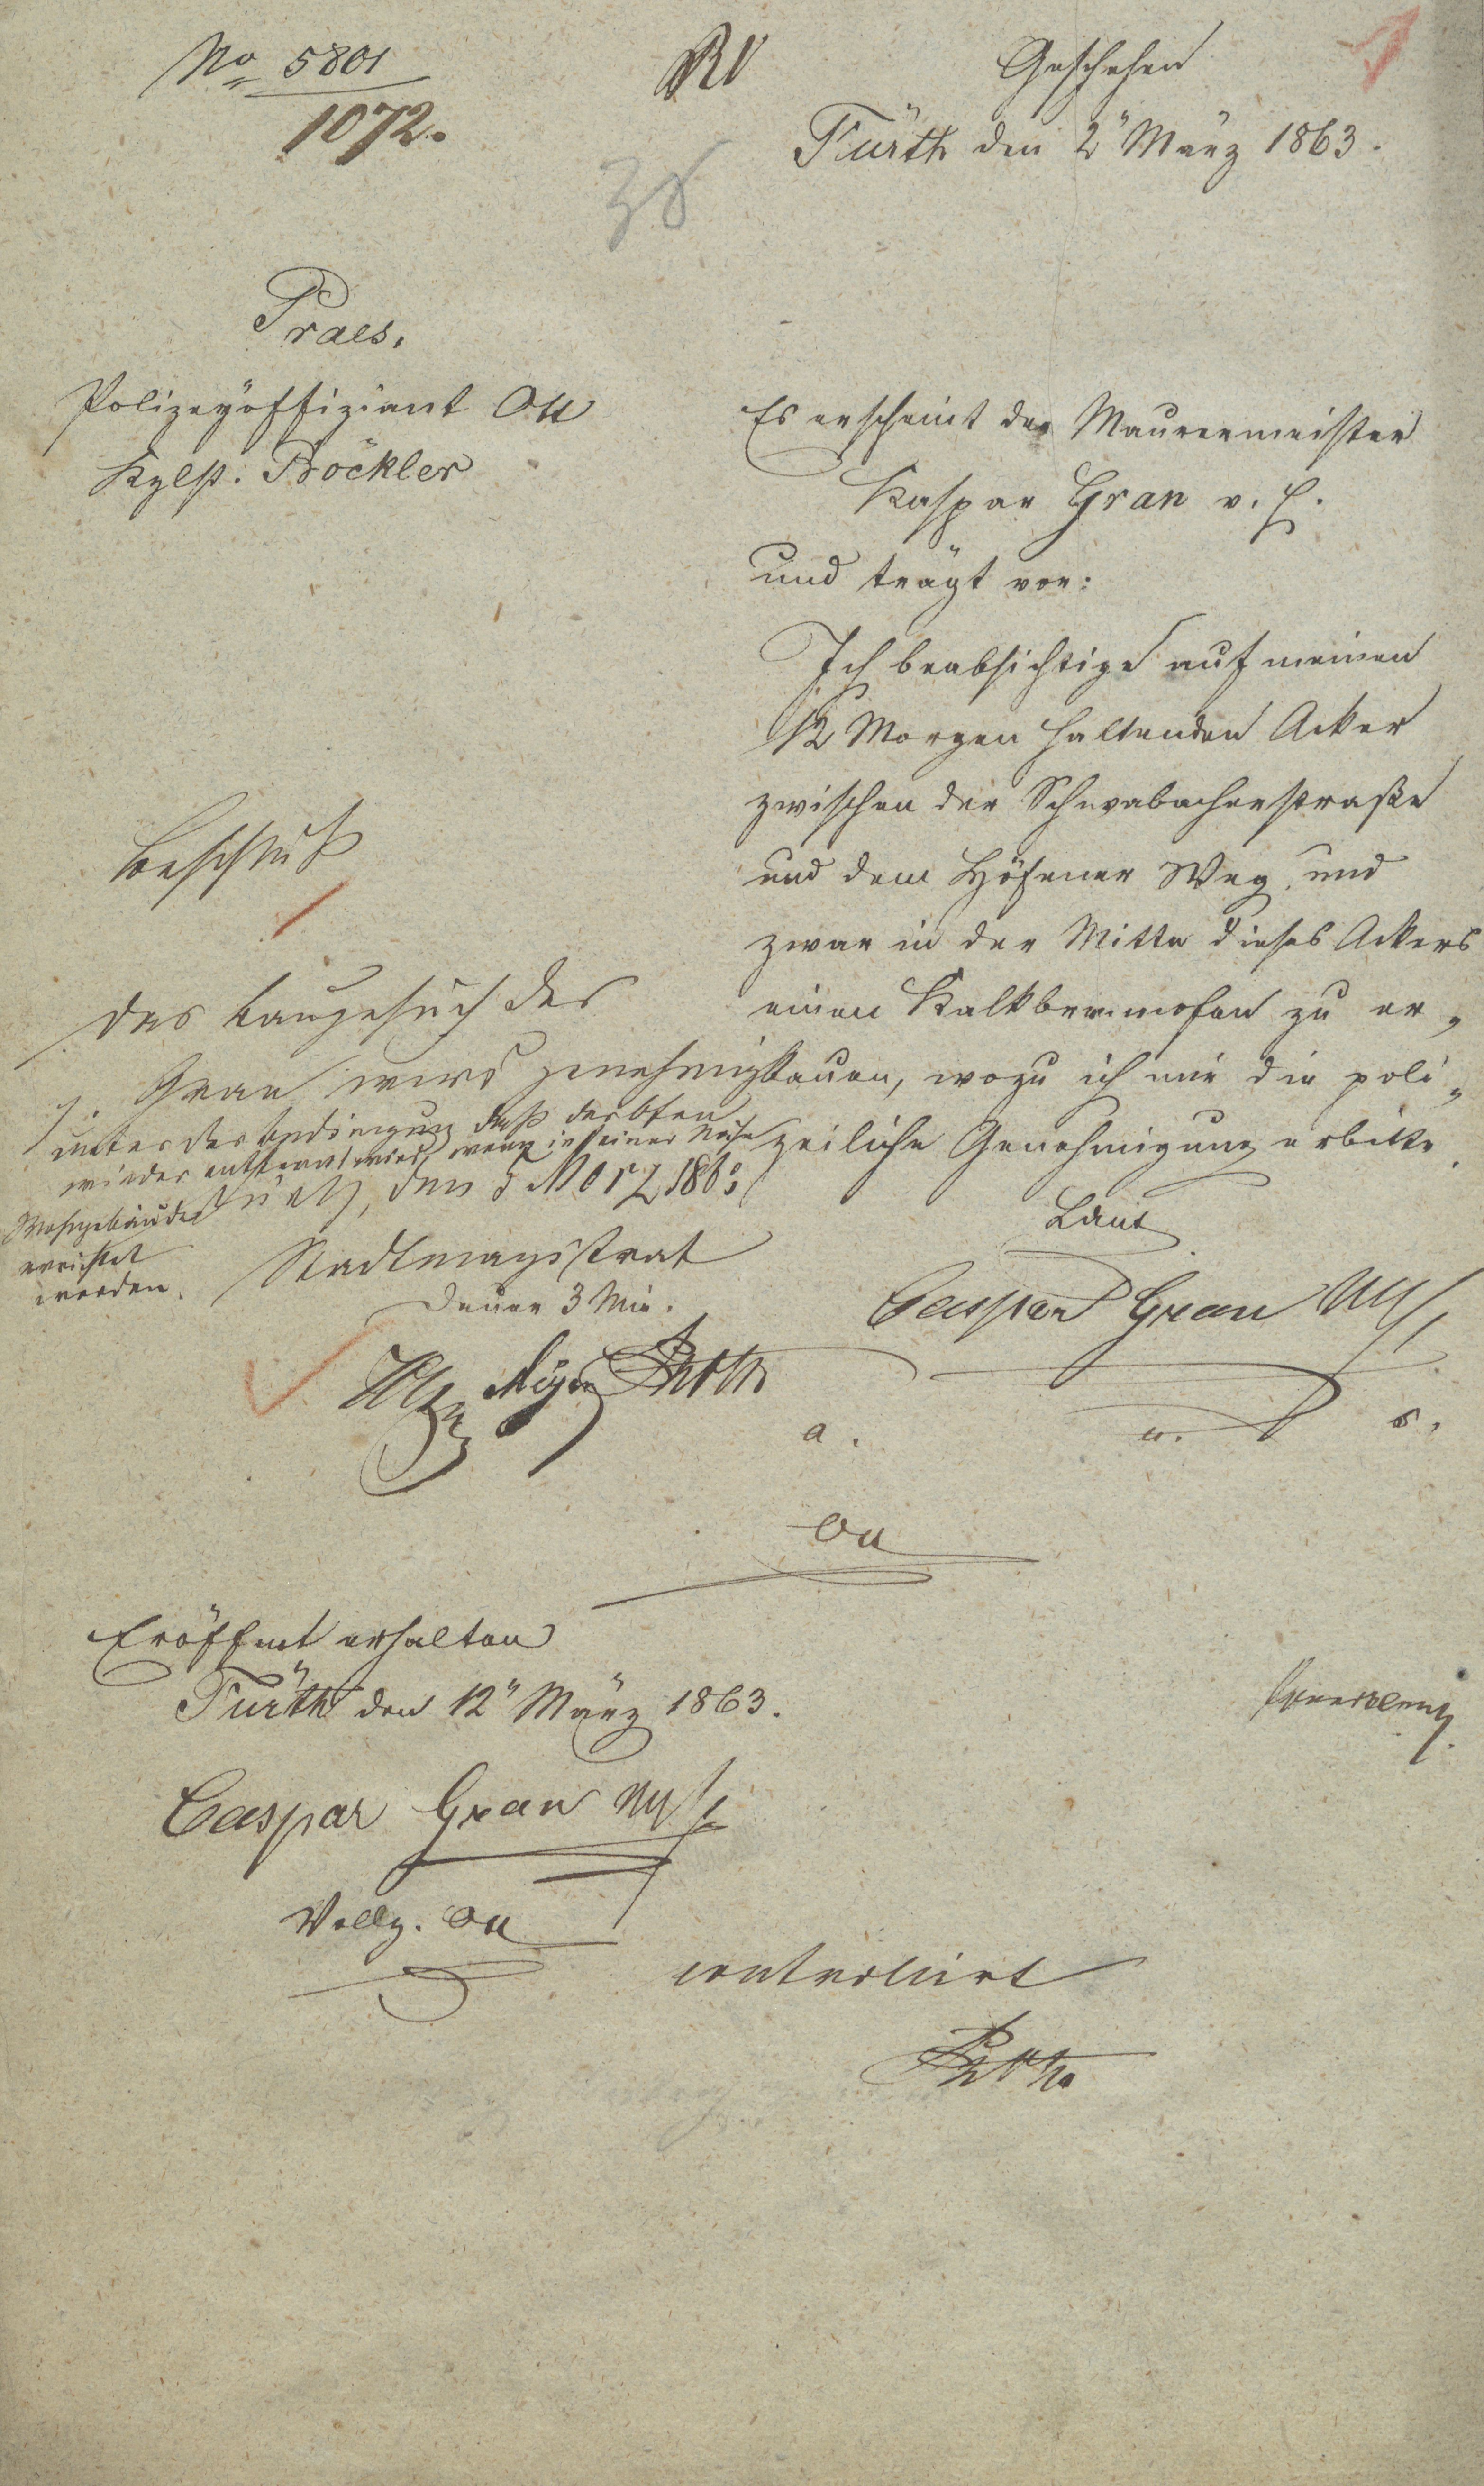 No 5801
1072.
RV
Geschehen
Fürth den 2" März 1863.
38
Praes.
Polizeyoffiziant Ott
Kzlst. Böckler
Es erscheint der Maurermeister
Kaspar Gran v. h.
und trägt vor:
Ich beabsichtige auf meinen
12 Morgen haltenden Acker
zwischen der Schwabacherstraße
und dem Höfener Weg, und
zwar in der Mitte dieses Ackers
einen Kalkbrennofen zu er-
bauen, wozu ich mir die poli-
zeiliche Genehmigung erbitte.
Laut
Caspar Gran
a. u. s.
Ott
Beschluß
Das Baugesuch des
p. Gran wird genehmigt
unter der Bedingung, daß der Ofen
wieder entfernt wird, wenn in seiner Nähe
Wohngebäude
errichtet
werden.
Fürth, den 5 März 1863
Stadtmagistrat
Dauer 3 Min.
Eröffnet erhalten
Fürth den 12" März 1863.
Caspar Gran
Vollzg. Ott
controllirt